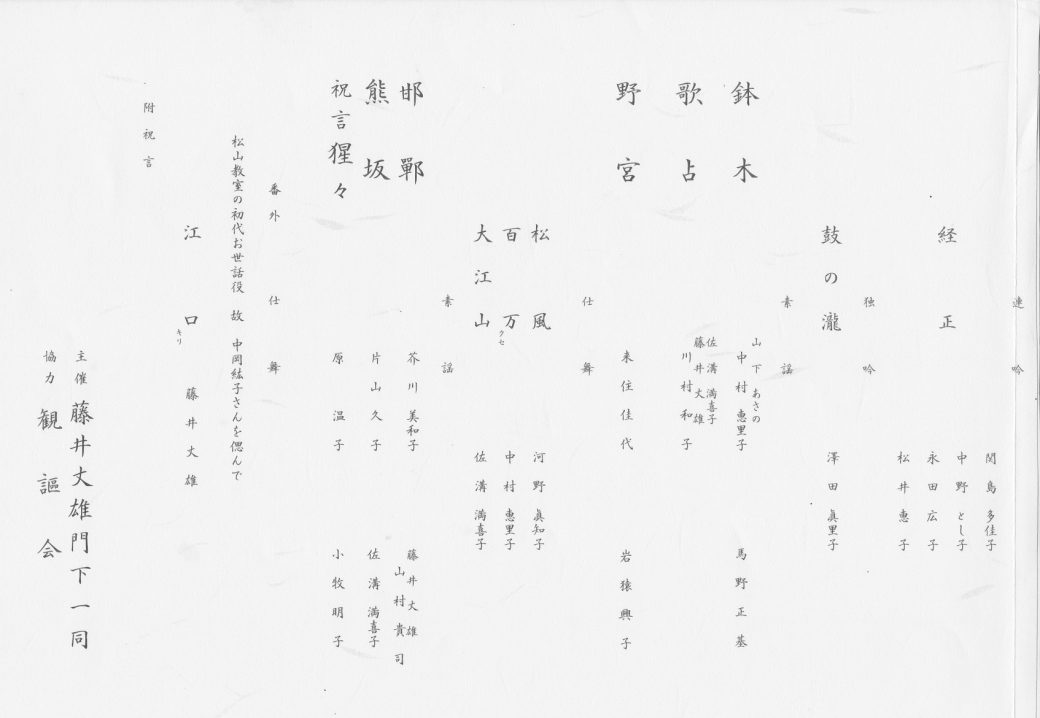 連吟
経正
関島多佳子
中野とし子
永田広子
松井恵子
独吟
鼓の瀧
澤田眞里子
素謡
鉢木
山下あさの
中村恵里子
馬野正基
歌占
佐溝満喜子
藤井丈雄
川村和子
野宮
来住佳代
岩猿興子
仕舞
松風
河野眞知子
百万クセ
中村恵里子
大江山
佐溝満喜子
素謡
邯鄲
芥川美和子
藤井丈雄
山村貴司
熊坂
片山久子
佐溝満喜子
祝言猩々
原温子
小牧明子
番外仕舞
松山教室の初代お世話役 故 中岡紘子さんを偲んで
江口キリ
藤井丈雄
附祝言
主催 藤井丈雄門下一同
協力 観謳会